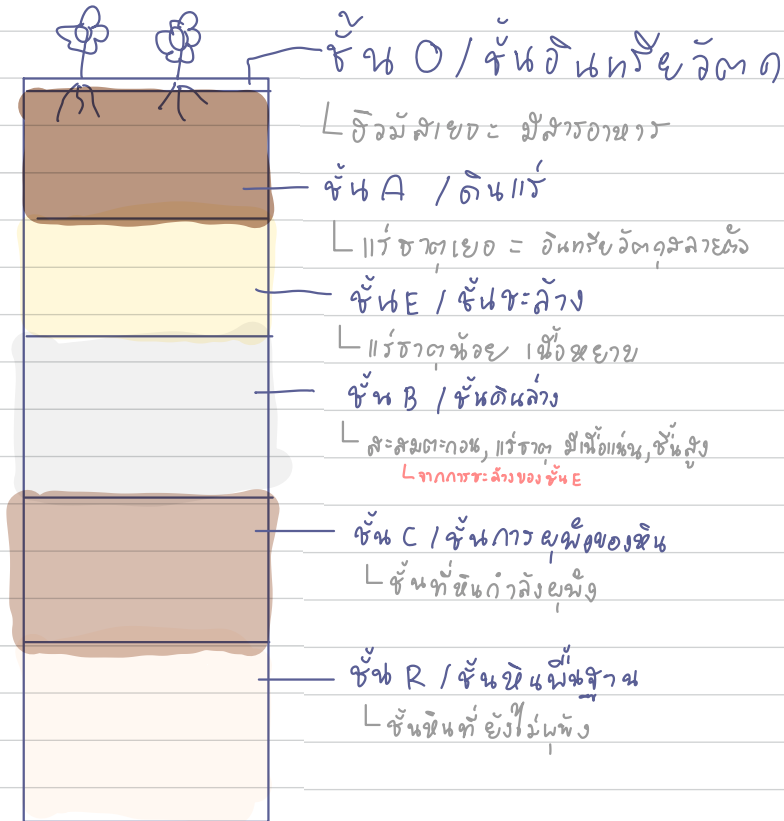 ชั้น O / ชั้นอินทรียวัตถุ
ฮิวมัสเยอะ มีสารอาหาร
ชั้น A / ดินแร่
แร่ธาตุเยอ = อินทรียวัตถุสลายตัว
ชั้น E / ชั้นชะล้าง
แร่ธาตุน้อย เนื้อหยาบ
ชั้น B / ชั้นดินล่าง
สะสมตะกอน, แร่ธาตุ มีเนื้อแน่น, ชื้นสูง
จากการชะล้างของชั้น E
ชั้น C / ชั้นการผุพังของหิน
ชั้นที่หินกำลังผุพัง
ชั้น R / ชั้นหินพื้นฐาน
ชั้นหินที่ยังไม่ผุพัง